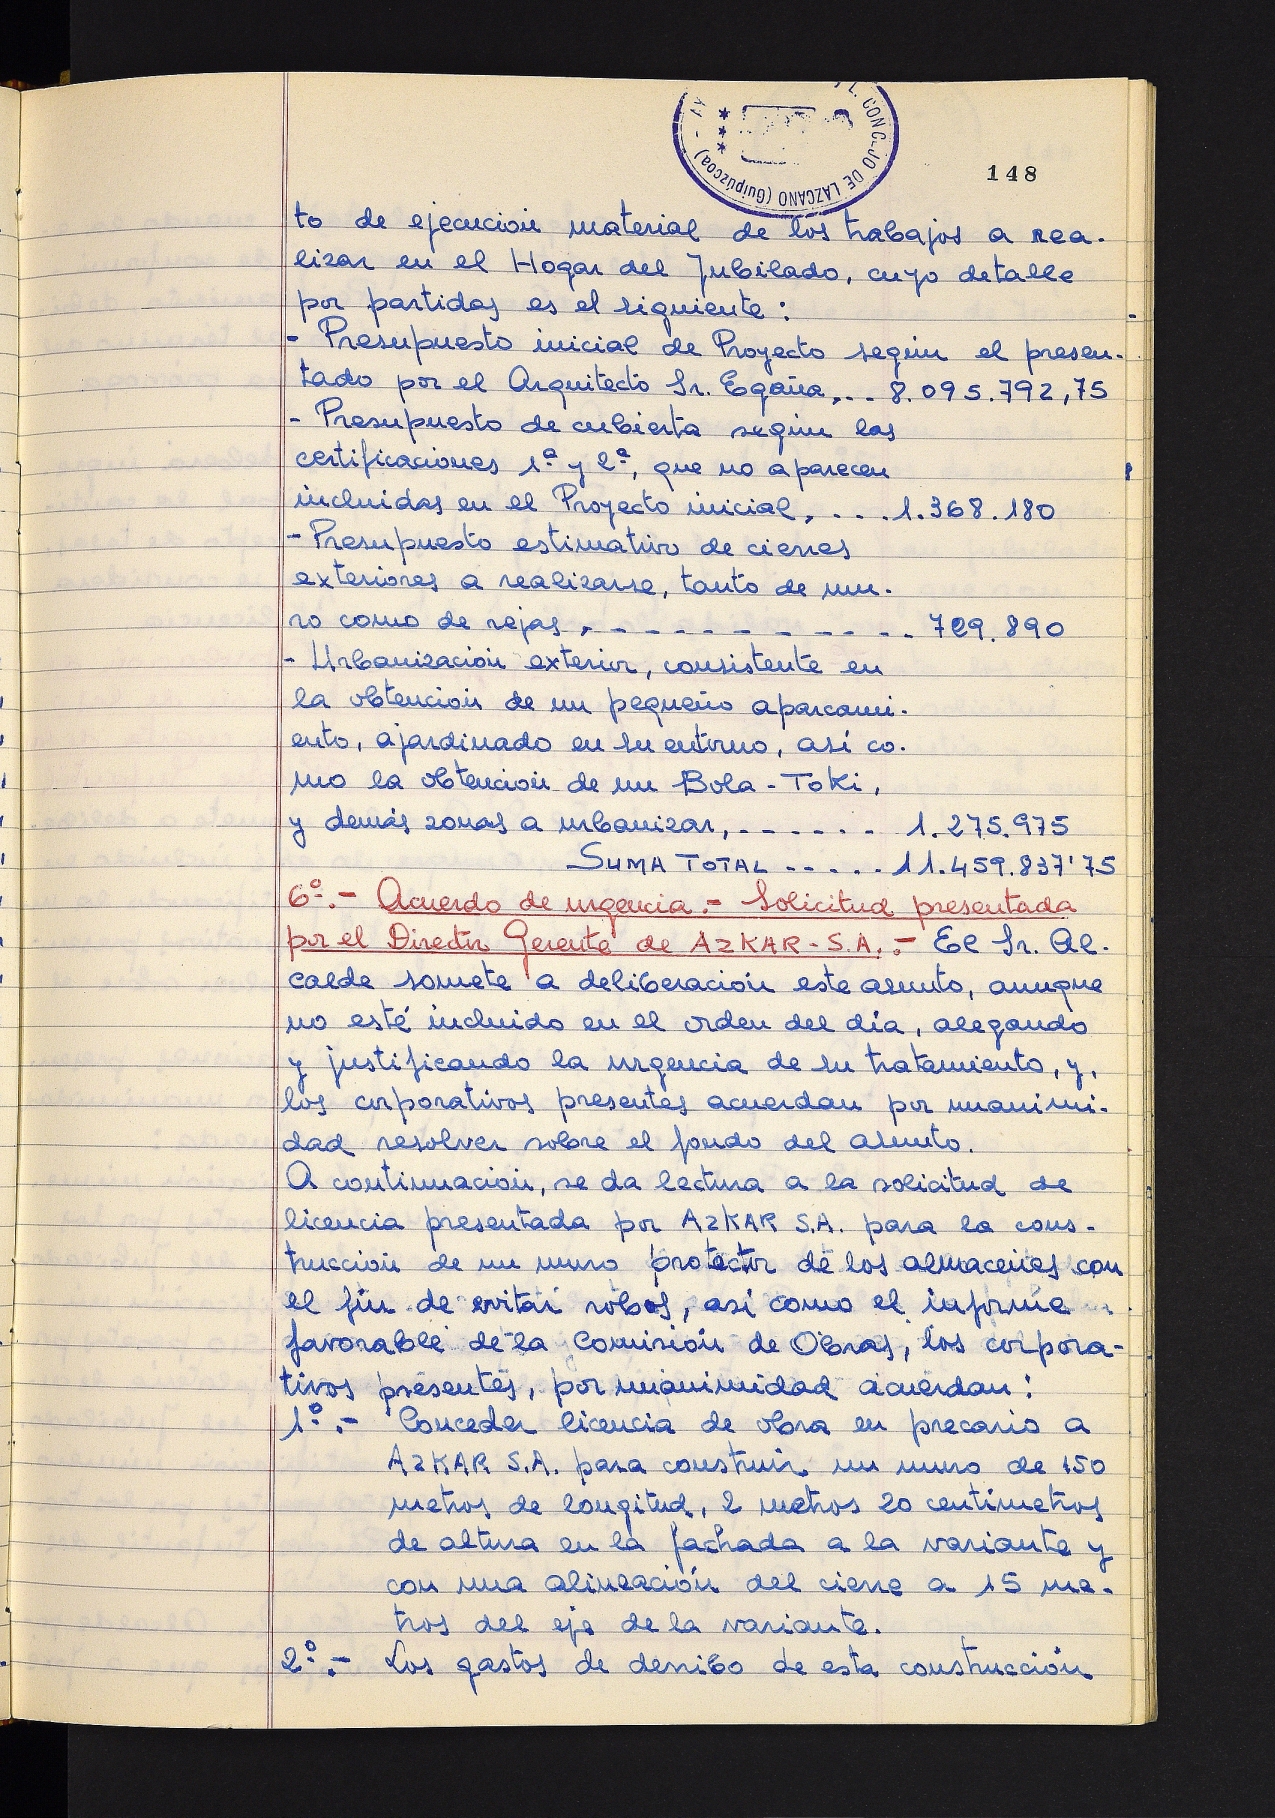 L. CONCEJO DE LAZCANO (Guipúzcoa) - AY
148
to de ejecución material de los trabajos a rea-
lizar en el Hogar del Jubilado, cuyo detalle
por partidas es el siguiente:
- Presupuesto inicial de Proyecto según el presen-
tado por el Arquitecto Sr. Egaña,... 8.095.792,75
- Presupuesto de cubierta según las
certificaciones 1ª y 2ª, que no aparecen
incluidas en el Proyecto inicial, ....1.368.180
- Presupuesto estimativo de cierres
exteriores a realizarse, tanto de mu-
ro como de rejas, - - - - - - - - - - - - 729.890
- Urbanización exterior, consistente en
la obtención de un pequeño aparcami-
ento, ajardinado en su entorno, así co-
mo la obtención de un Bola-Toki,
y demás zonas a urbanizar, - - - - - - 1.275.975
SUMA TOTAL - - - - - 11.459.837'75
6º.- Acuerdo de urgencia.- Solicitud presentada
por el Director Gerente de AZKAR-S.A..- El Sr. Al-
calde somete a deliberación este asunto, aunque
no esté incluido en el orden del día, alegando
y justificando la urgencia de su tratamiento, y,
los corporativos presentes acuerdan por unanimi-
dad resolver sobre el fondo del asunto.
A continuación, se da lectura a la solicitud de
licencia presentada por AZKAR S.A. para la cons-
trucción de un muro protector de los almacenes con
el fin de evitar robos, así como el informe
favorable de la Comisión de Obras, los corpora-
tivos presentes, por unanimidad acuerdan:
1º.- Conceder licencia de obra en precario a
AZKAR S.A. para construir un muro de 150
metros de longitud, 2 metros 20 centímetros
de altura en la fachada a la variante y
con una alineación del cierre a 15 me-
tros del eje de la variante.
2º.- Los gastos de derribo de esta construcción